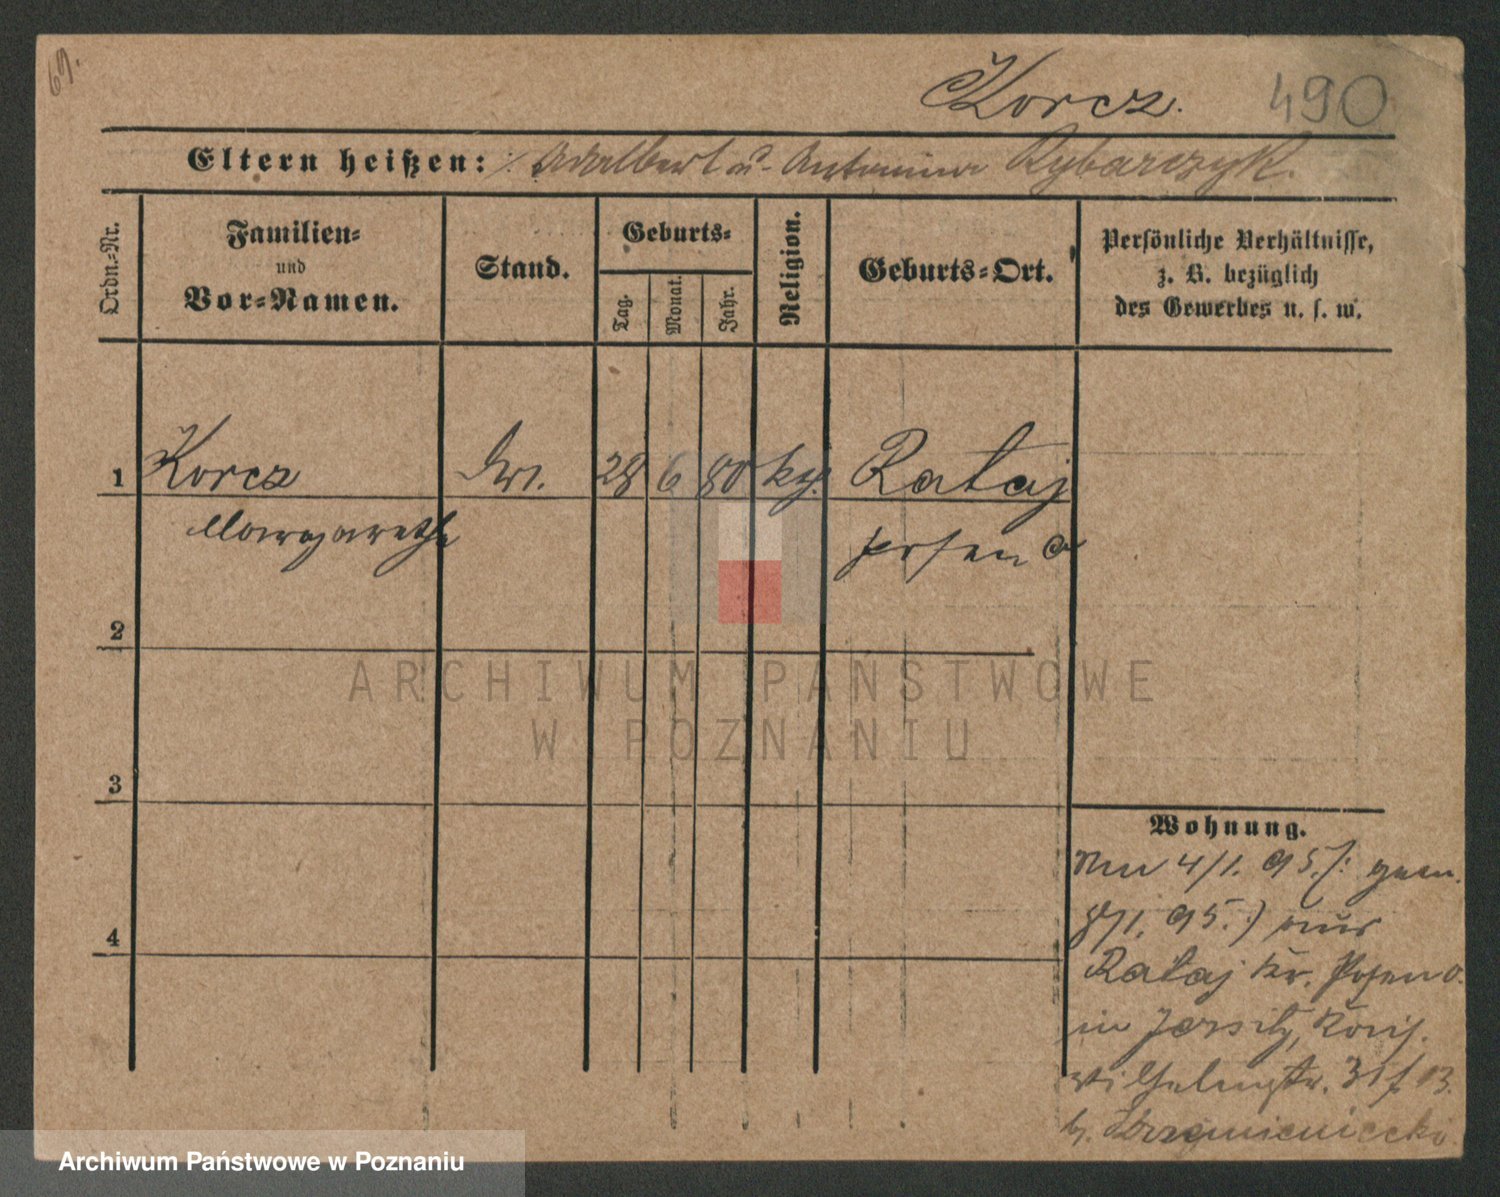 69.
Korcz. 490
Eltern heißen: Adalbert u. Antonina Rybarczyk.
Ordn.-Nr.
Familien-
und
Vor-Namen.
Stand.
Geburts-
Tag.
Monat.
Jahr.
Religion.
Geburts-Ort.
Persönliche Verhältnisse,
z. B. bezüglich
des Gewerbes u. s. w.
1 Korcz 28 6 80 Rataj
Margarethe Posen O
2
3
4
Wohnung.
4/1. 95 /:
95. :) aus
Rataj Kr. Posen O.
in Jersitz,
Wilhelmstr. 31
b.
ARCHIWUM PAŃSTWOWE
W POZNANIU
Archiwum Państwowe w Poznaniu